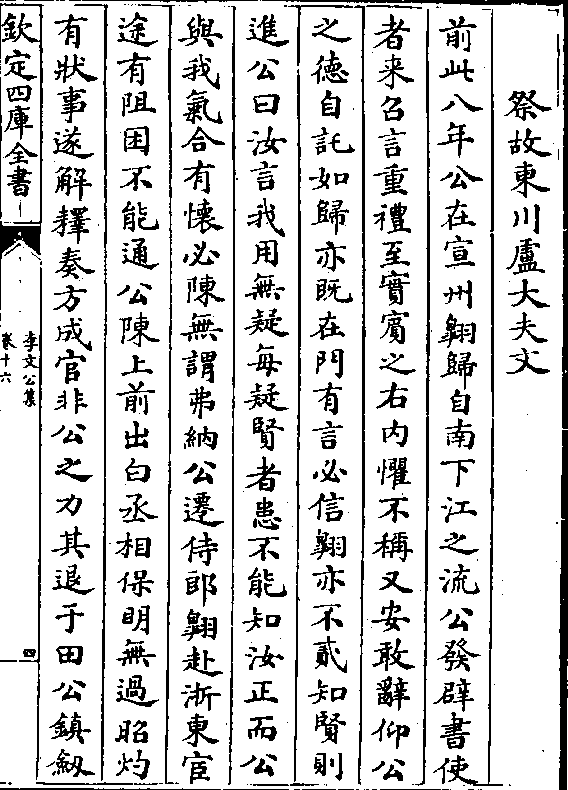 祭故東川盧大夫文
前此八年公在宣州翺歸自南下江之流公發辟書使
者来召言重禮至實賓之右内懼不稱又安敢辭仰公
之德自託如歸亦既在門有言必信翺亦不貳知賢則
進公曰汝言我用無疑每疑賢者患不能知汝正而公
與我氣合有懷必陳無謂弗納公遷侍郎翺赴浙東宦
途有阻困不能通公陳上前出白丞相保明無過昭灼
有狀事遂解釋奏方成官非公之力其退于田公鎮劒
欽定四庫全書
李文公集
卷十六
四